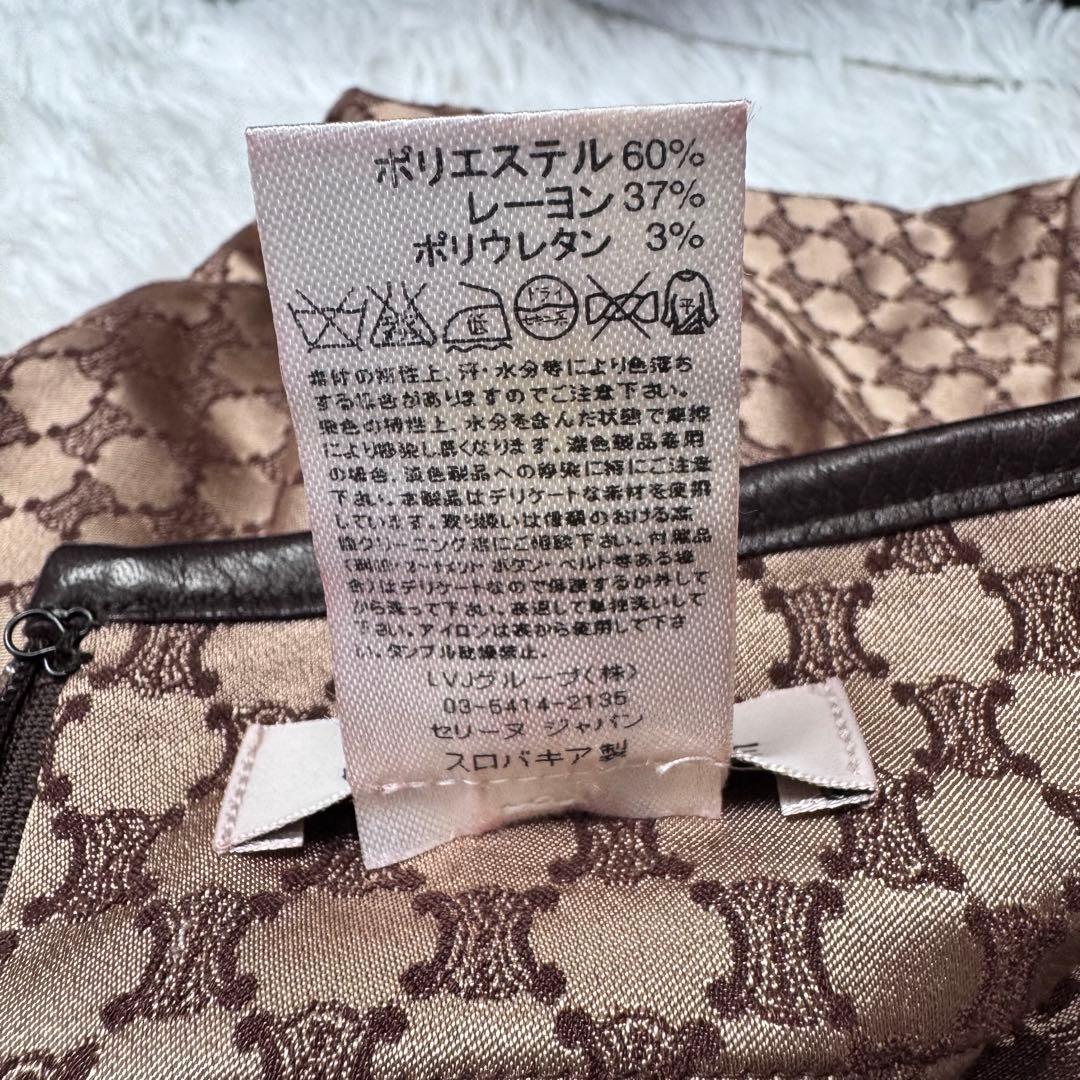 ポリエステル 60%
レーヨン 37%
ポリウレタン 3%
低 ドライ 平
素材の特性上、汗・水分等により色落ち
する場合がありますのでご注意下さい。
染色の特性上、水分を含んだ状態で摩擦
により移染し易くなります。濃色製品着用
の場合、淡色製品への移染に特にご注意
下さい。本製品はデリケートな素材を使用
しています。取り扱いは信頼のおける高
級クリーニング店にご相談下さい。付属品
ボタン・ベルト等ある場
合)はデリケートなので保護するか外して
から洗って下さい。裏返して単独洗いして
下さい。アイロンは裏から使用して下さ
い。タンブル乾燥禁止。
LVJグループ(株)
03-5414-2135
セリーヌ ジャパン
スロバキア製